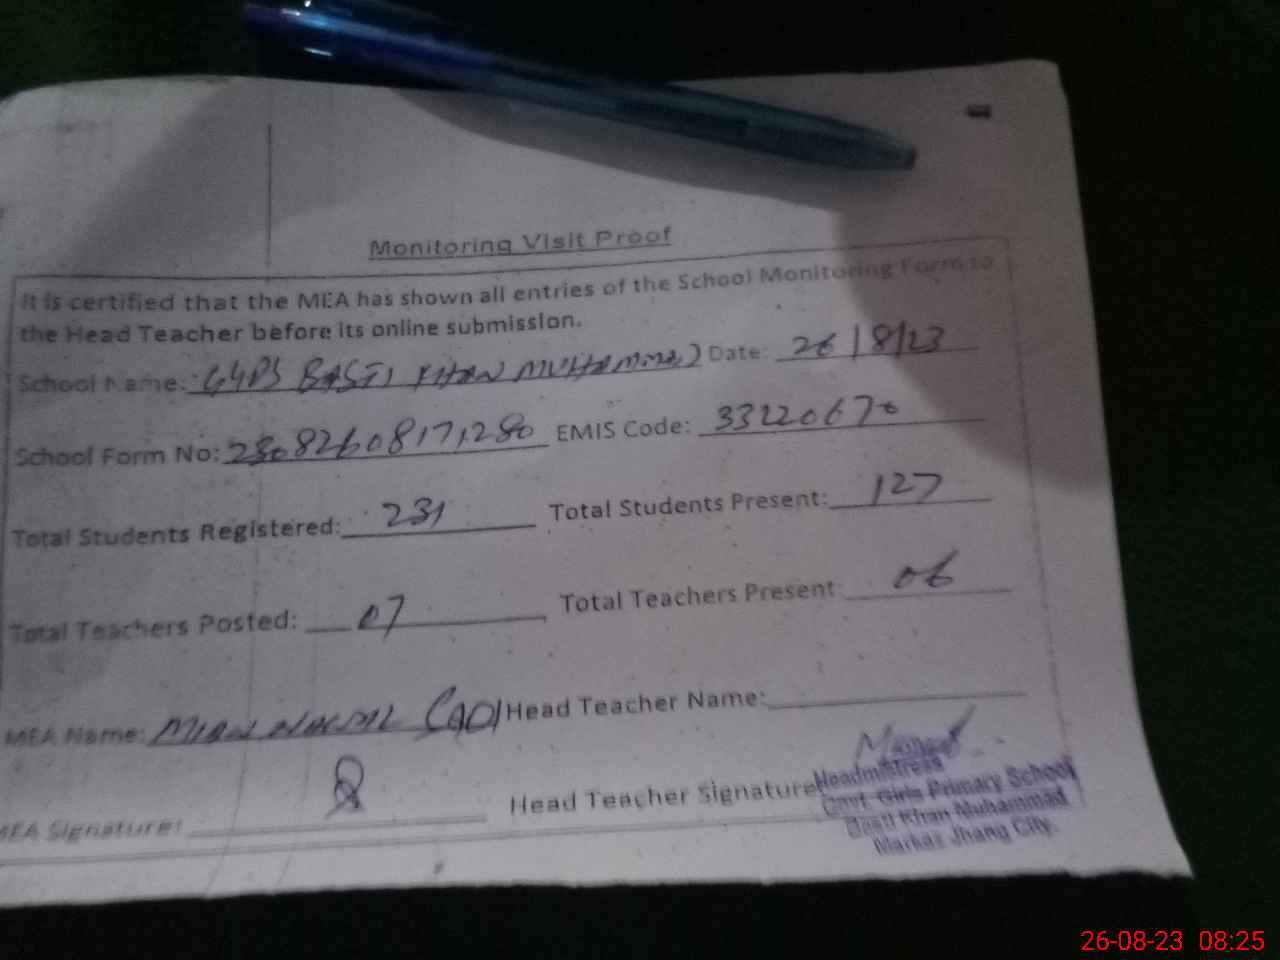 Monitoring Visit Proof
It is certified that the MEA has shown all entries of the School Monitoring Form to
the Head Teacher before its online submission.
School Name: GGPS BASTI KHAN MUHAMMAD Date: 26/8/23
School Form No: EMIS Code: 33220670
Total Students Registered: 231 Total Students Present: 127
Total Teachers Posted: 07 Total Teachers Present: 06
MEA Name: MIAN Head Teacher Name:
MEA Signature: Head Teacher Signature
Headmistress
Govt. Girls Primary School
Basti Khan Muhammad
Markaz Jhang City.
26-08-23 08:25